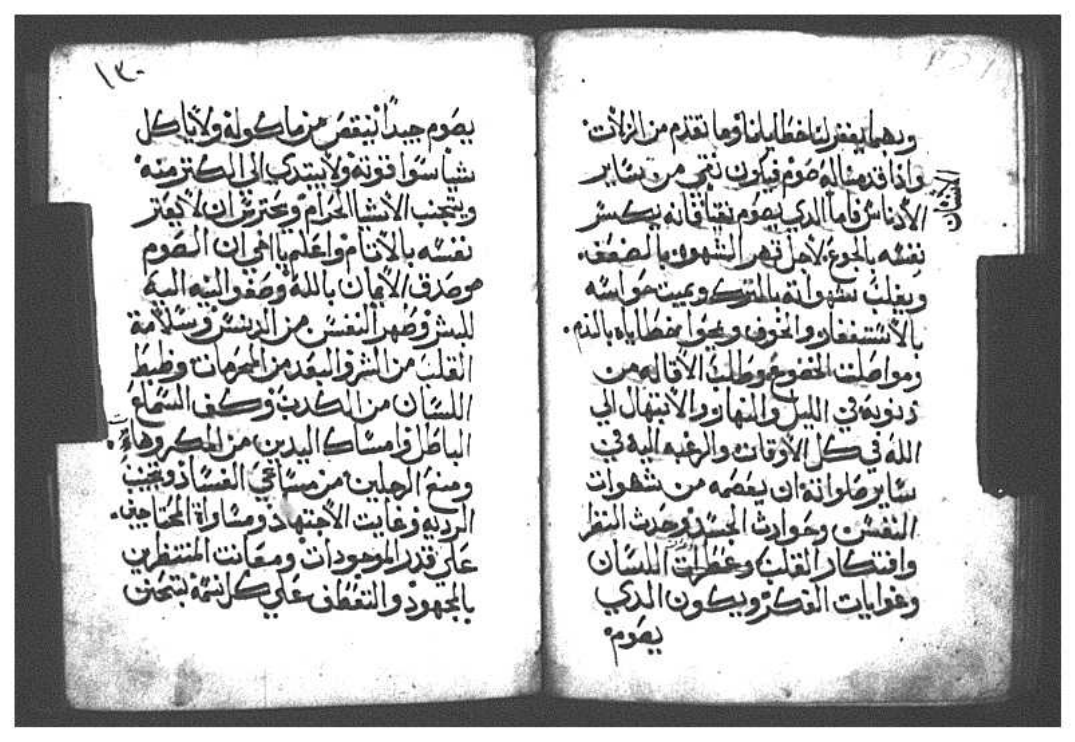 وبهما يغفر لنا خطايانا وما تقدم من الزلات
واذا قدمنا له صوم فيكون نقي من ساير
الانسان
الأدناس فاما الدي يصوم نقيا فانه يكسر
نفسه بالجوع لاجل قهر الشهوه بالضعف
ويغلب شهواته بالترك ويميت حواسه
بالأستغفار والخوف ويمحوا خطاياه بالندم
ومواصلت الخضوع وطلب الأقاله من
دنوبه في الليل والنهار والأبتهال الي
الله في كل الأوقات والرغبه اليه في
ساير صلواته ان يعصمه من شهوات
النفس وحوادث الجسد وحدث النظر
وافتكار القلب وعطرات اللسان
وغوايات الفكر ويكون الدي
يصوم
١٣٠
يصوم جيداً ينقص من ماكوله ولاياكل
شيا سوا قوته ولا يبتدي الي الكتر منه
ويتجنب الأشيا الحرام ويحترس ان لا يغتر
نفسه بالأتام واعلم يا اخي ان الصوم
هو صدق الأيمان بالله وصفو النيه اليه
للبش وطهر النفس من الدنس وسلامة
القلب من الشر والبعد من المحرمات وضبط
اللسان من الكدب وكف السماع
الباطل وامساك اليدين من المكروهات
ومنع الرجلين من مساعي الفساد وتجنب
الرديه وغايت الأجتهاد ومساواة المحتاجين
علي قدر الموجودات ومعانت المنتظرين
بالمجهود والتعطف علي كل نسمة بتحنن